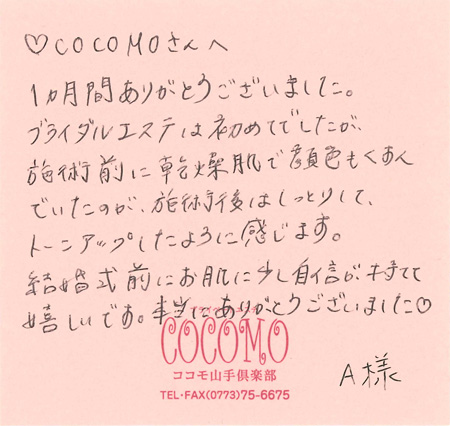 ♡COCOMOさんへ
1ヵ月間ありがとうございました。
ブライダルエステは初めてでしたが、
施術前に乾燥肌で顔色もくすん
でいたのが、施術後はしっとりして、
トーンアップしたように感じます。
結婚式前にお肌に少し自信が持てて
嬉しいです。本当にありがとうございました♡
COCOMO
ココモ山手倶楽部
TEL・FAX(0773)75-6675
A様